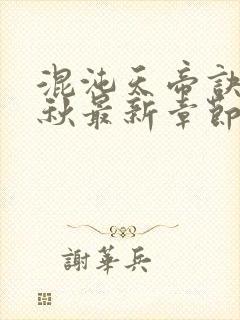 混沌天帝訣
秋最新章節
謝華兵